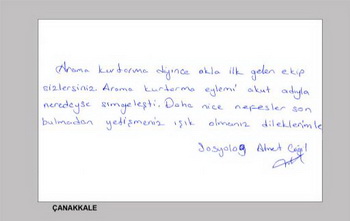 Arama kurtarma diyince akla ilk gelen ekip
sizlersiniz. Arama kurtarma eylemi akut adıyla
neredeyse simgeleşti. Daha nice nefesler son
bulmadan yetişmeniz ışık olmanız dileklerimle
Sosyolog Ahmet
ÇANAKKALE